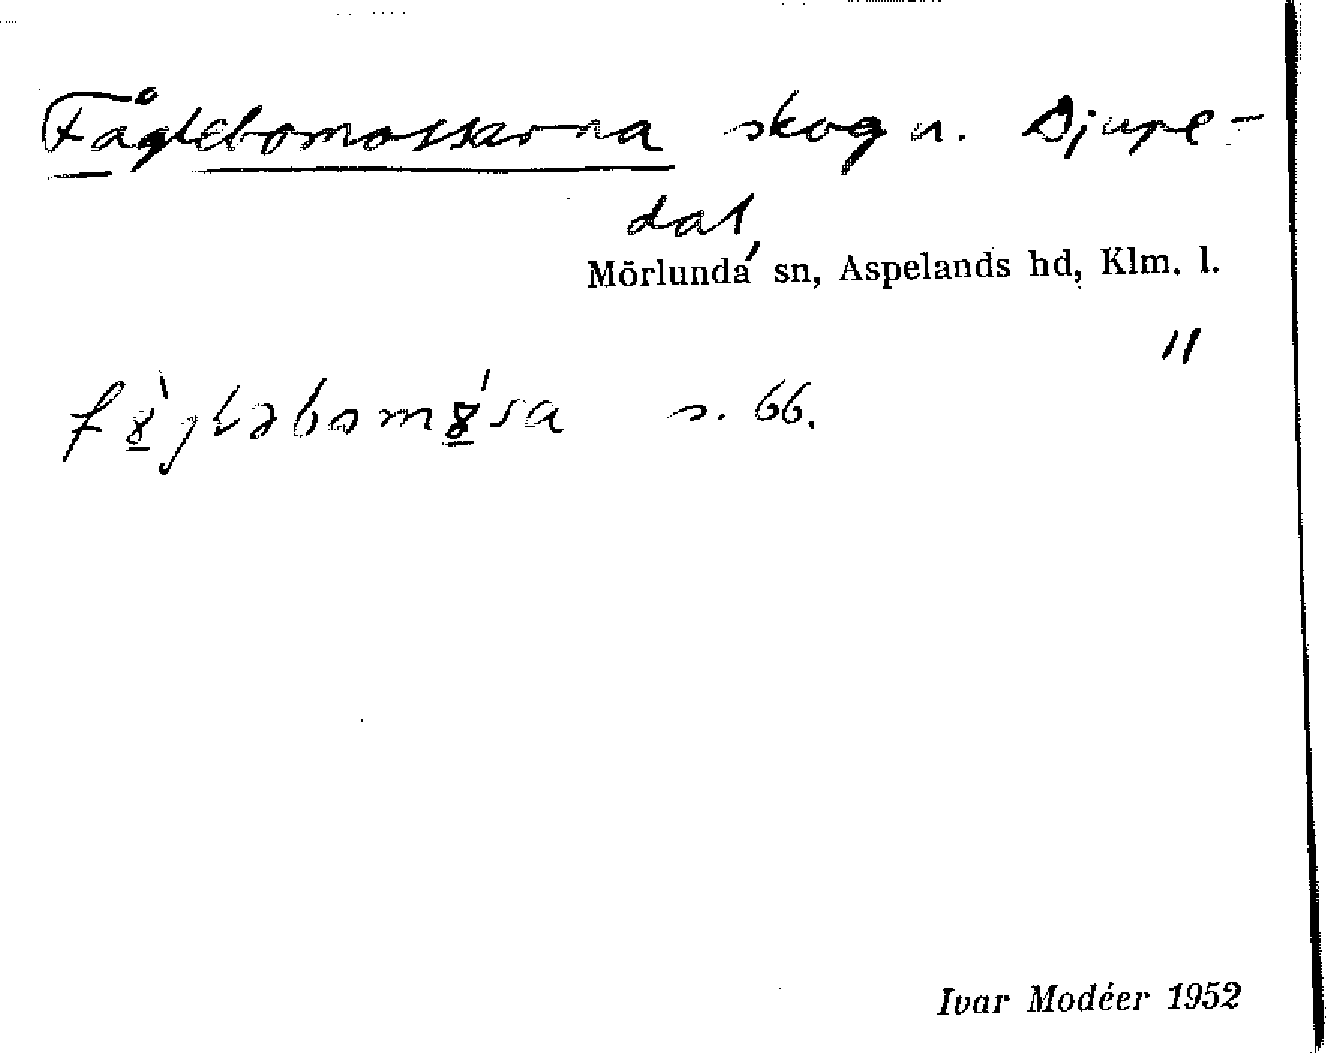 Fåglebomosserna skog u. Djupe-
dal,
Mörlunda sn, Aspelands hd, Klm. l.
"
s. 66.
Ivar Modéer 1952